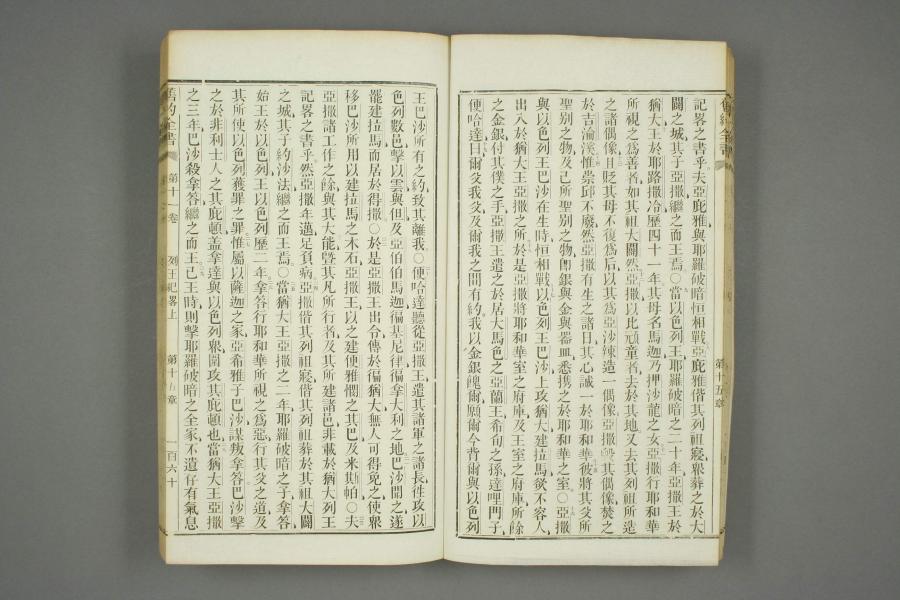 記畧之書乎夫亞庇雅與耶羅破暗恒相戰亞庇雅偕其列祖寢眾葬之於大
闢之城其子亞撒繼之而王焉○當以色列王耶羅破暗之二十年亞撒王於
猶大王於耶路撒冷歷四十一年其母名馬迦乃押沙龍之女亞撒行耶和華
所視之爲善者如其祖大闢然亞撒以比頑童者去於其地又去其列祖所造
之諸偶像且貶其母不復爲后以其爲亞沙竦造一偶像亞撒毀其偶像焚之
於吉淪溪惟崇邱不廢然亞撒有生之諸日其心誠一於耶和華彼將其父所
聖別之物及己所聖別之物卽銀與金與器皿悉携之於耶和華之室○亞撒
與以色列王巴沙在生時恒相戰以色列王巴沙上攻猶大建拉馬欲不容人
出入於猶大王亞撒之所於是亞撒將耶和華室之府庫及王室之府庫所餘
之金銀付其僕之手亞撒王遣之於居大馬色之亞蘭王希旬之孫達哩門子
便哈達曰爾父我父及爾我之間有約我以金銀餽爾願爾今背爾與以色列
第十五章
王巴沙所有之約致其離我○便哈達聽從亞撒王遣其諸軍之諸長徃攻以
色列數邑擊以雲與但及亞伯伯馬迦徧基尼律徧拿大利之地巴沙聞之遂
罷建拉馬而居於得撒○於是亞撒王出令傳於徧猶大無人可得免之使眾
移巴沙所用以建拉馬之木石亞撒王以之建便雅憫之其巴及米斯帕○夫
亞撒諸工作之餘與其大能曁其凡所行者及其所建諸邑非載於猶大列王
記畧之書乎然亞撒年邁足負病亞撒偕其列祖寢偕其列祖葬於其祖大闢
之城其子約沙法繼之而王焉○當猶大王亞撒之二年耶羅破暗之子拿答
始王於以色列王以色列歷二年拿答行耶和華所視之爲惡行其父之道及
其所使以色列獲罪之罪惟屬以薩迦之家亞希雅子巴沙謀叛拿答巴沙擊
之於非利士人之其庇頓蓋拿達與以色列眾圍攻其庇頓也當猶大王亞撒
之三年巴沙殺拿答繼之而王已王時則擊耶羅破暗之全家不遺存有氣息
舊約全書
第十一卷
列王紀畧上
第十五章
一百六十